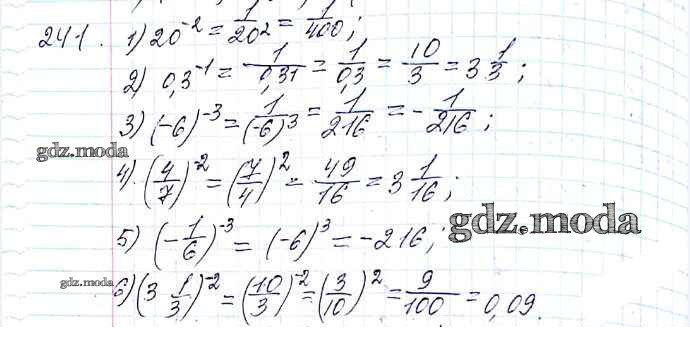 241. 1) 20^-2 = 1/20^2 = 1/400;
2) 0,3^-1 = 1/0,3^1 = 1/0,3 = 10/3 = 3 1/3;
3) (-6)^-3 = 1/(-6)^3 = 1/216 = - 1/216;
gdz.moda
4). (4/7)^-2 = (7/4)^2 = 49/16 = 3 1/16;
gdz.moda
5) (-1/6)^-3 = (-6)^3 = -216;
gdz.moda
6) (3 1/3)^-2 = (10/3)^-2 = (3/10)^2 = 9/100 = 0,09.